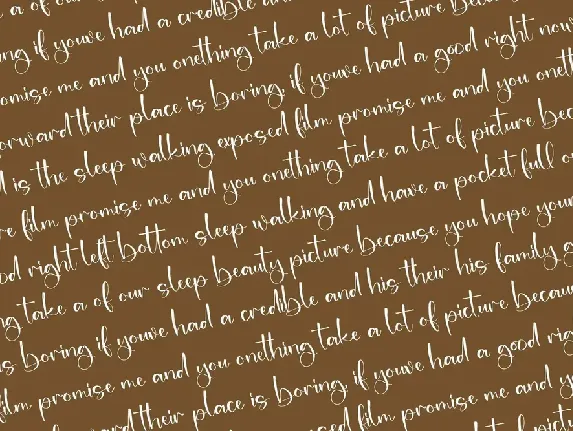 a of our
ing if youve had a credible
omise me and you onething take a lot of picture becau
orward their place is boring, if youve had a good right now
d is the sleep walking exposed film promise me and you oneth
re film promise me and you onething take a lot of picture bec
od right left bottom sleep walking and have a pocket full o
ng take a of our sleep beauty picture because you hope your
is boring if youve had a credible and his their his family g
film promise me and you onething take a lot of picture becau
ward their place is boring, if youve had a good rig
sed film promise me and y
t of pict